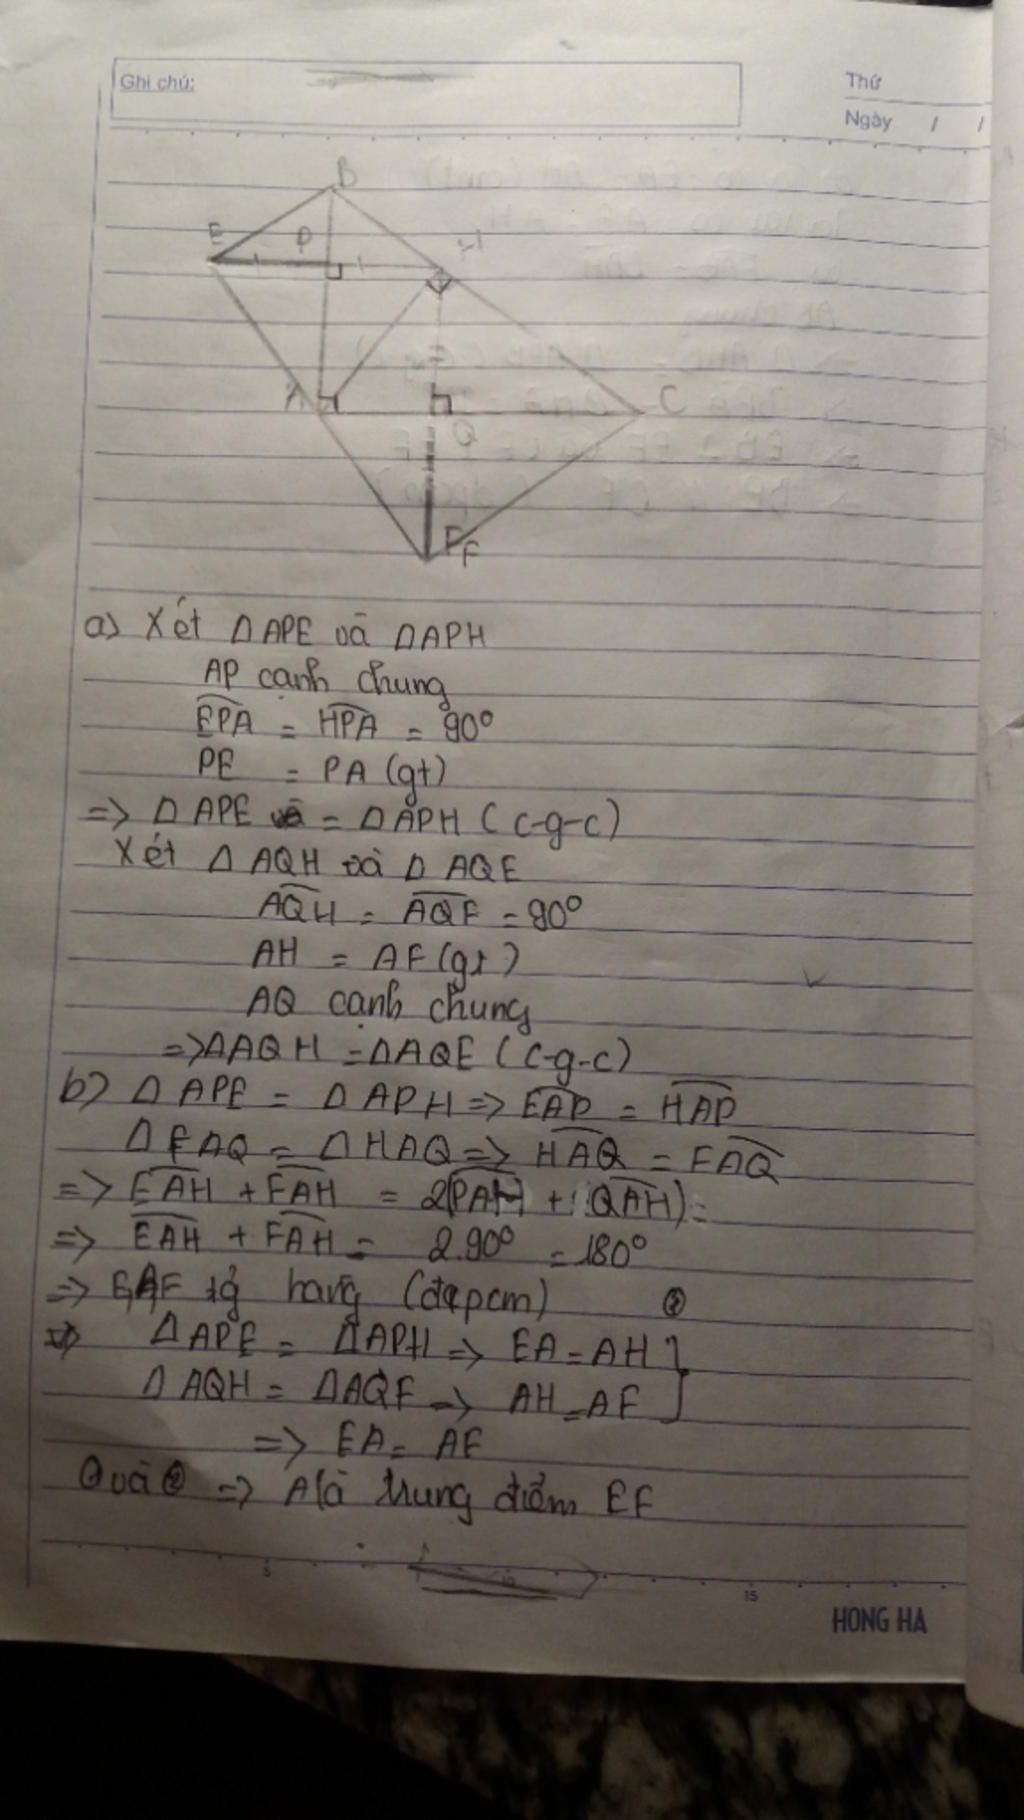 Ghi chú:
Thứ
Ngày / /
B
E
P
H
A
C
Q
F
a) Xét ΔAPE và ΔAPH
AP cạnh chung
EPA = HPA = 90°
PE = PA (gt)
=> ΔAPE = ΔAPH (c-g-c)
Xét ΔAQH và ΔAQE
AQH = AQF = 90°
AH = AF (gt)
AQ cạnh chung
=> ΔAQH = ΔAQE (c-g-c)
b) ΔAPE = ΔAPH => EAP = HAP
ΔFAQ = ΔHAQ => HAQ = FAQ
=> EAH + FAH = 2(PAH + QAH) =
=> EAH + FAH = 2.90° = 180°
=> E,A,F hàng (đpcm)
=> ΔAPE = ΔAPH => EA = AH }
ΔAQH = ΔAQF => AH = AF
=> EA = AF
và ② => A là trung điểm EF
5
10
15
HONG HA